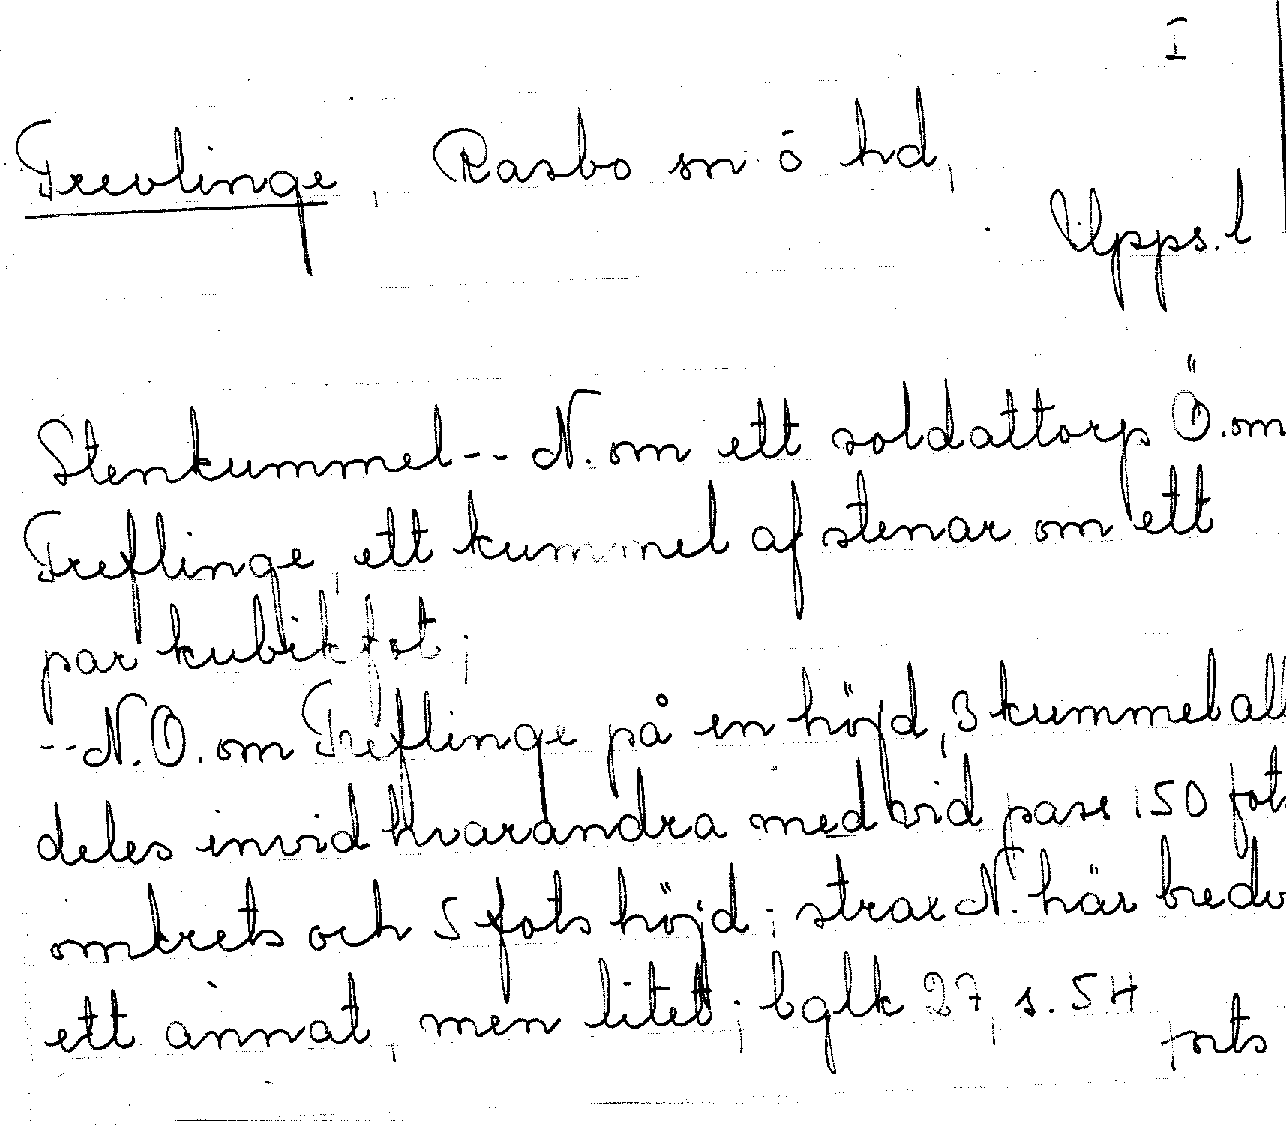 I
Trevlinge, Rasbo sn o hd,
Upps. l
Stenkummel -- N. om ett soldattorp Ö. om
Treflinge, ett kummel af stenar om ett
par kubikfot;
-- N.O. om Treflinge på en höjd, 3 kummel all
deles invid hvarandra med vid pass 150 fots
omkrets och 5 fots höjd; strax N. här bredv
ett annat, men litet; bglk 27, s. 54
forts